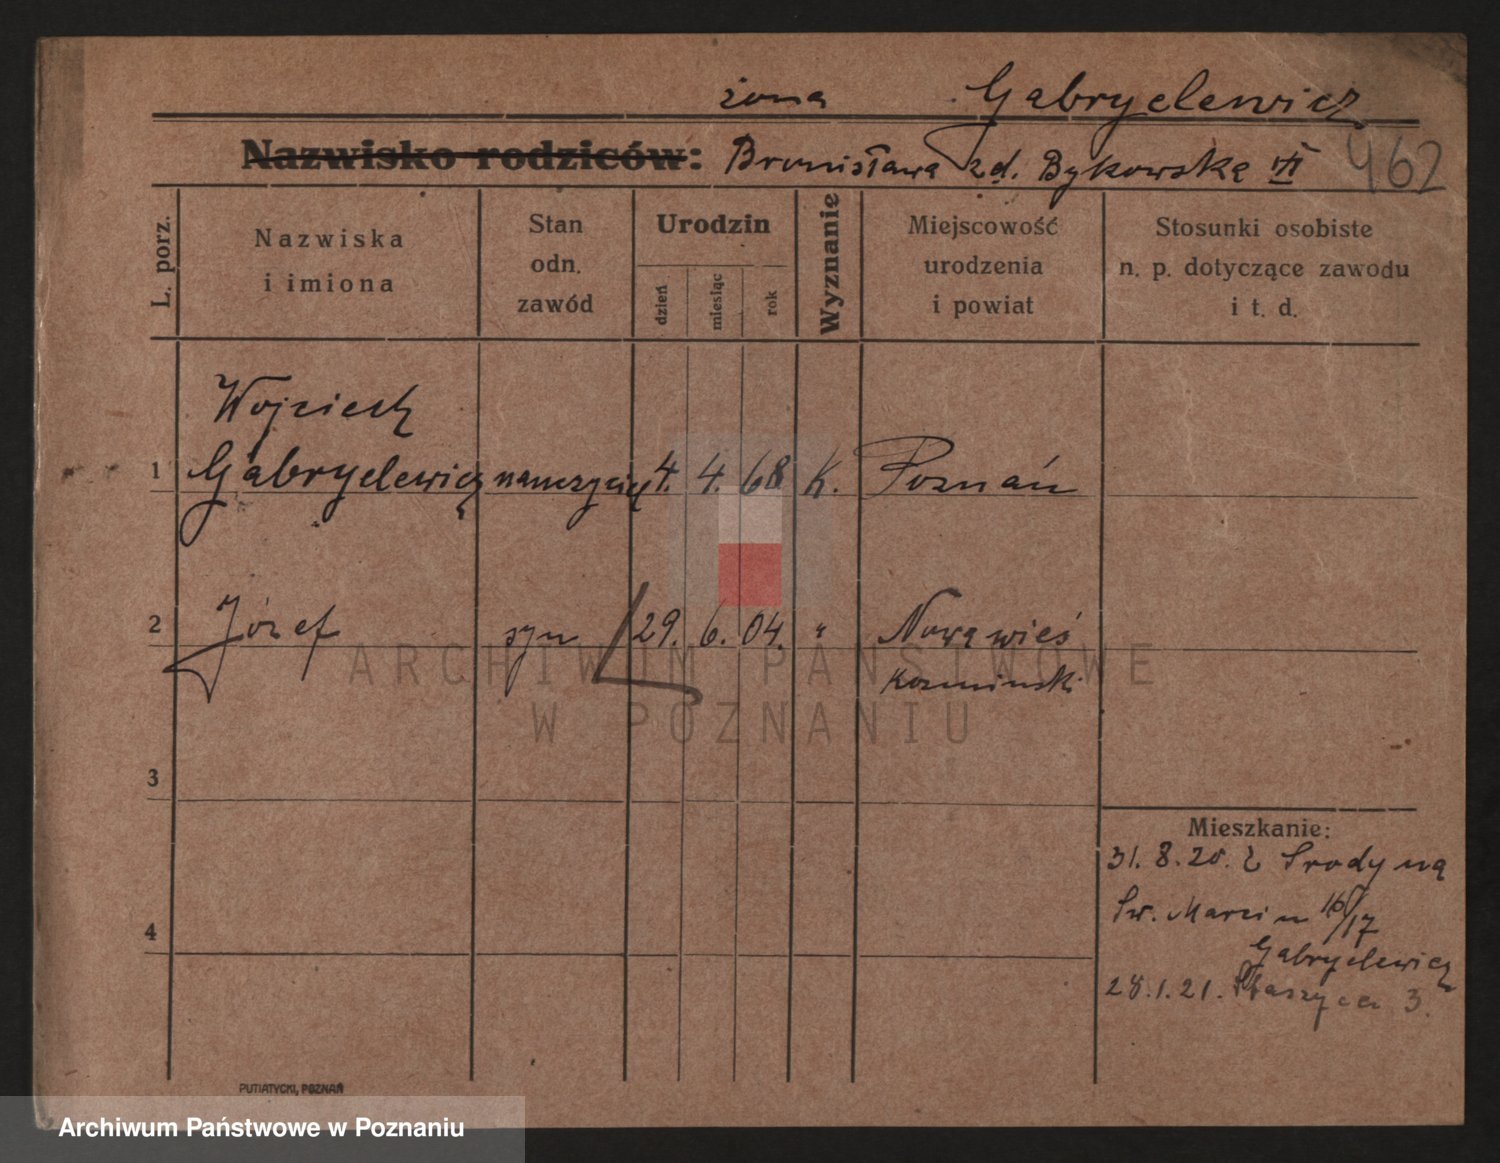 żona Gabryelewicz
Nazwisko rodziców: Bronisława zd. Bykowska VII 462
L. porz.
Nazwiska
i imiona
Stan
odn.
zawód
Urodzin
dzień
miesiąc
rok
Wyznanie
Miejscowość
urodzenia
i powiat
Stosunki osobiste
n. p. dotyczące zawodu
i t. d.
Wojciech
1 Gabryelewicz nauczyciel 4. 4. 68 K. Poznań
2 Józef syn 29. 6. 04. " Nowawieś
koźmiński
ARCHIWUM PAŃSTWOWE
W POZNANIU
3
Mieszkanie:
31. 8. 20. z Środy na
Św. Marcin 16/17
4
Gabryelewicz
28.1.21. Staszyca 3.
PUTIATYCKI, POZNAŃ
Archiwum Państwowe w Poznaniu